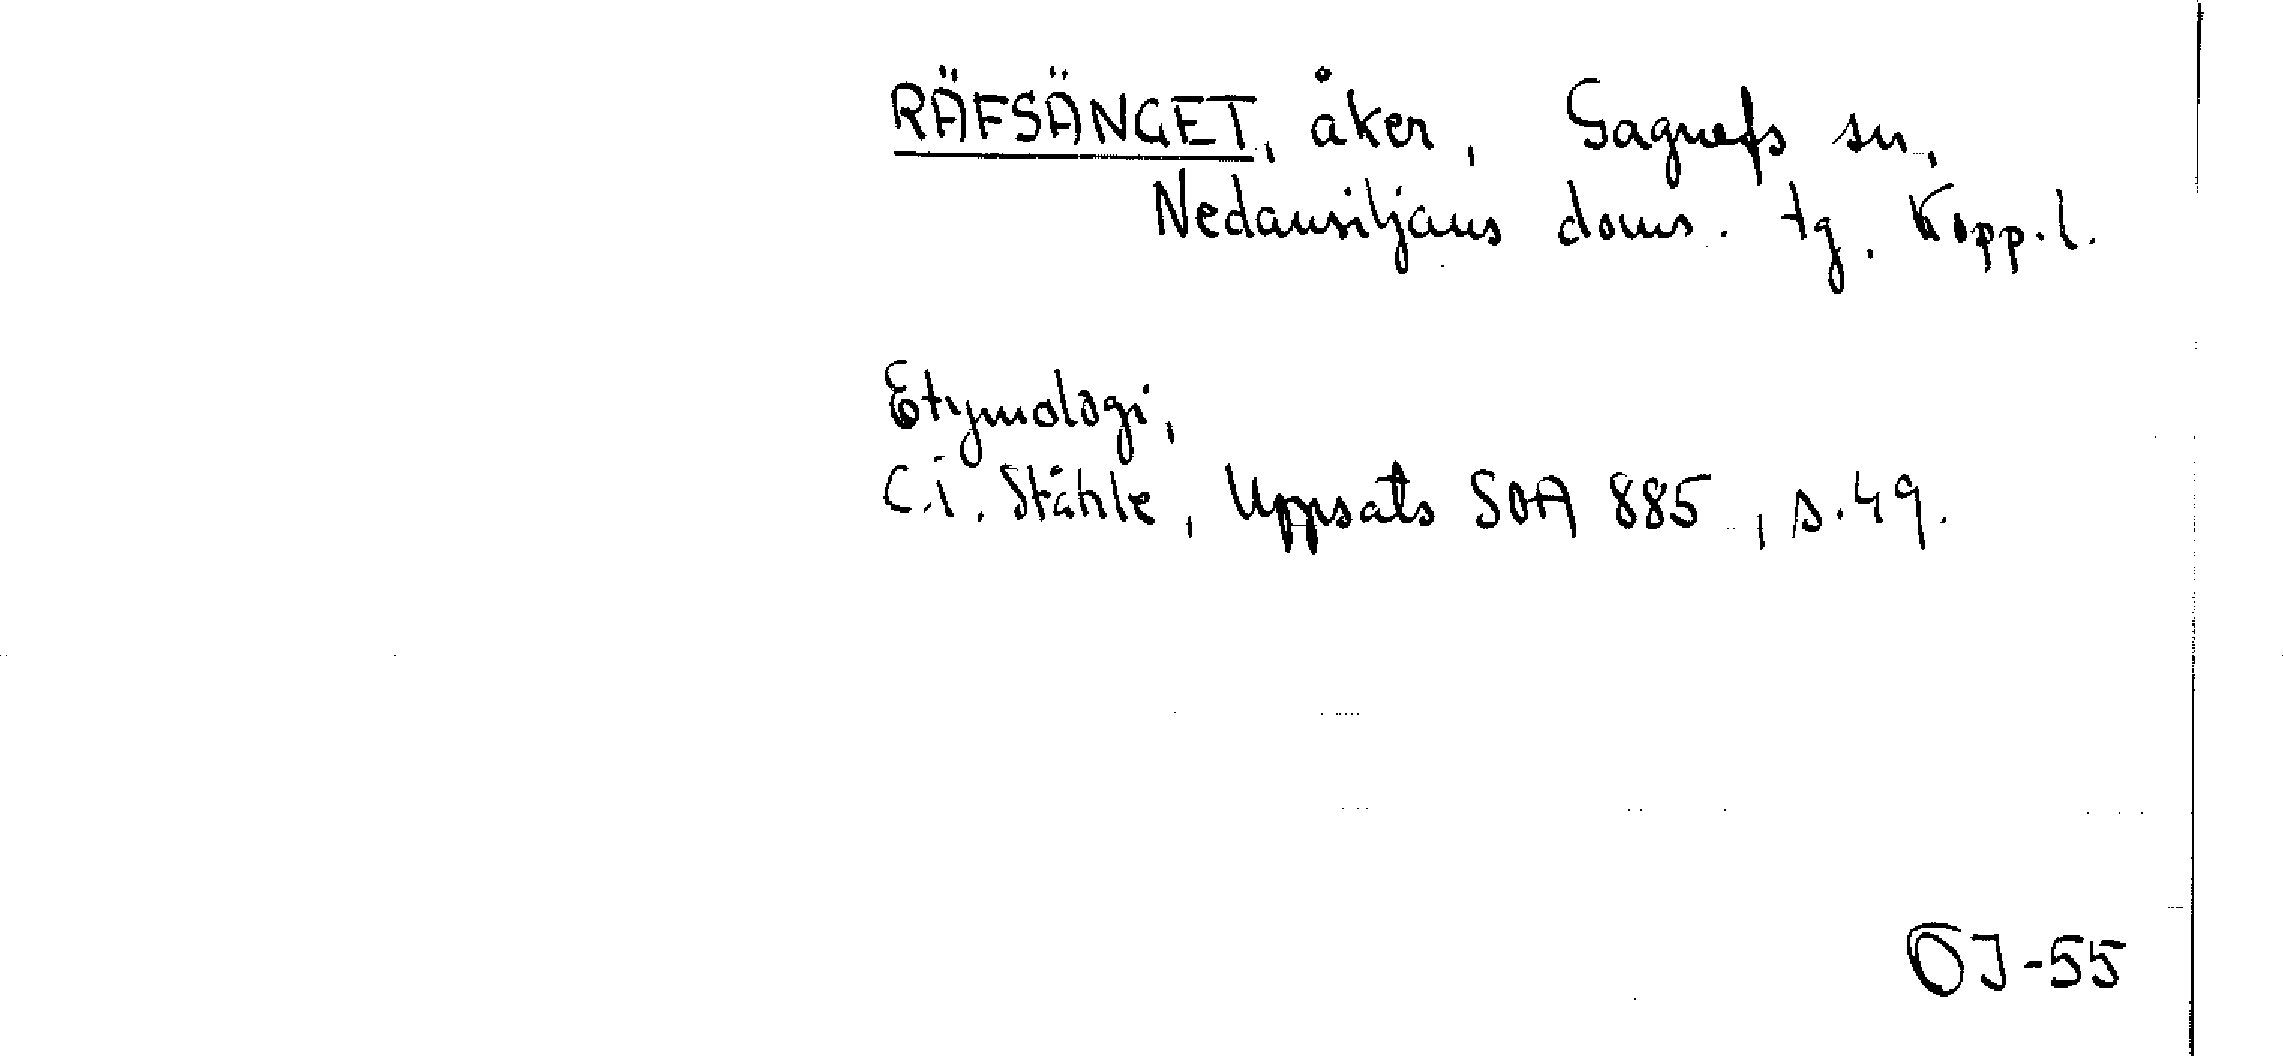 RÄFSÄNGET, åker, Gagnefs sn,
Nedansiljans doms. tg. Kopp. l.
Etymologi,
C.I. Ståhle, Uppsats SOA 885, s. 49.
OJ-55